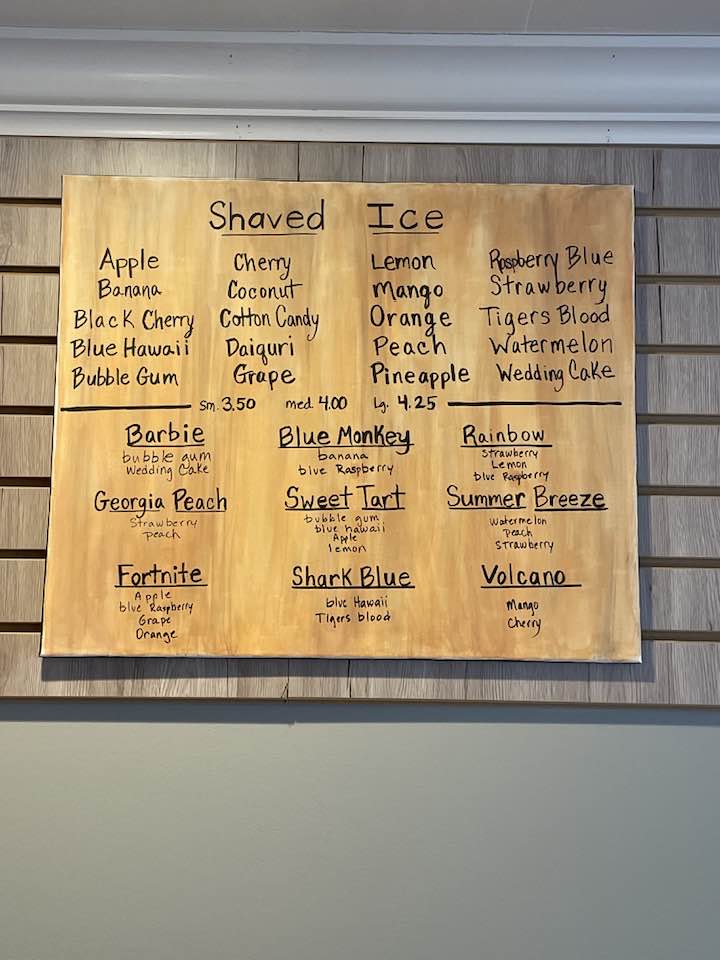 Shaved Ice
Apple Cherry Lemon Raspberry Blue
Banana Coconut Mango Strawberry
Black Cherry Cotton Candy Orange Tigers Blood
Blue Hawaii Daiquri Peach Watermelon
Bubble Gum Grape Pineapple Wedding Cake
Sm. 3.50 med 4.00 Lg. 4.25
Barbie
bubble gum
Wedding Cake
Blue Monkey
banana
blue Raspberry
Rainbow
Strawberry
Lemon
blue Raspberry
Georgia Peach
Strawberry
Peach
Sweet Tart
bubble gum
blue hawaii
Apple
lemon
Summer Breeze
Watermelon
Peach
Strawberry
Fortnite
Apple
blue Raspberry
Grape
Orange
Shark Blue
blue Hawaii
Tigers blood
Volcano
Mango
Cherry